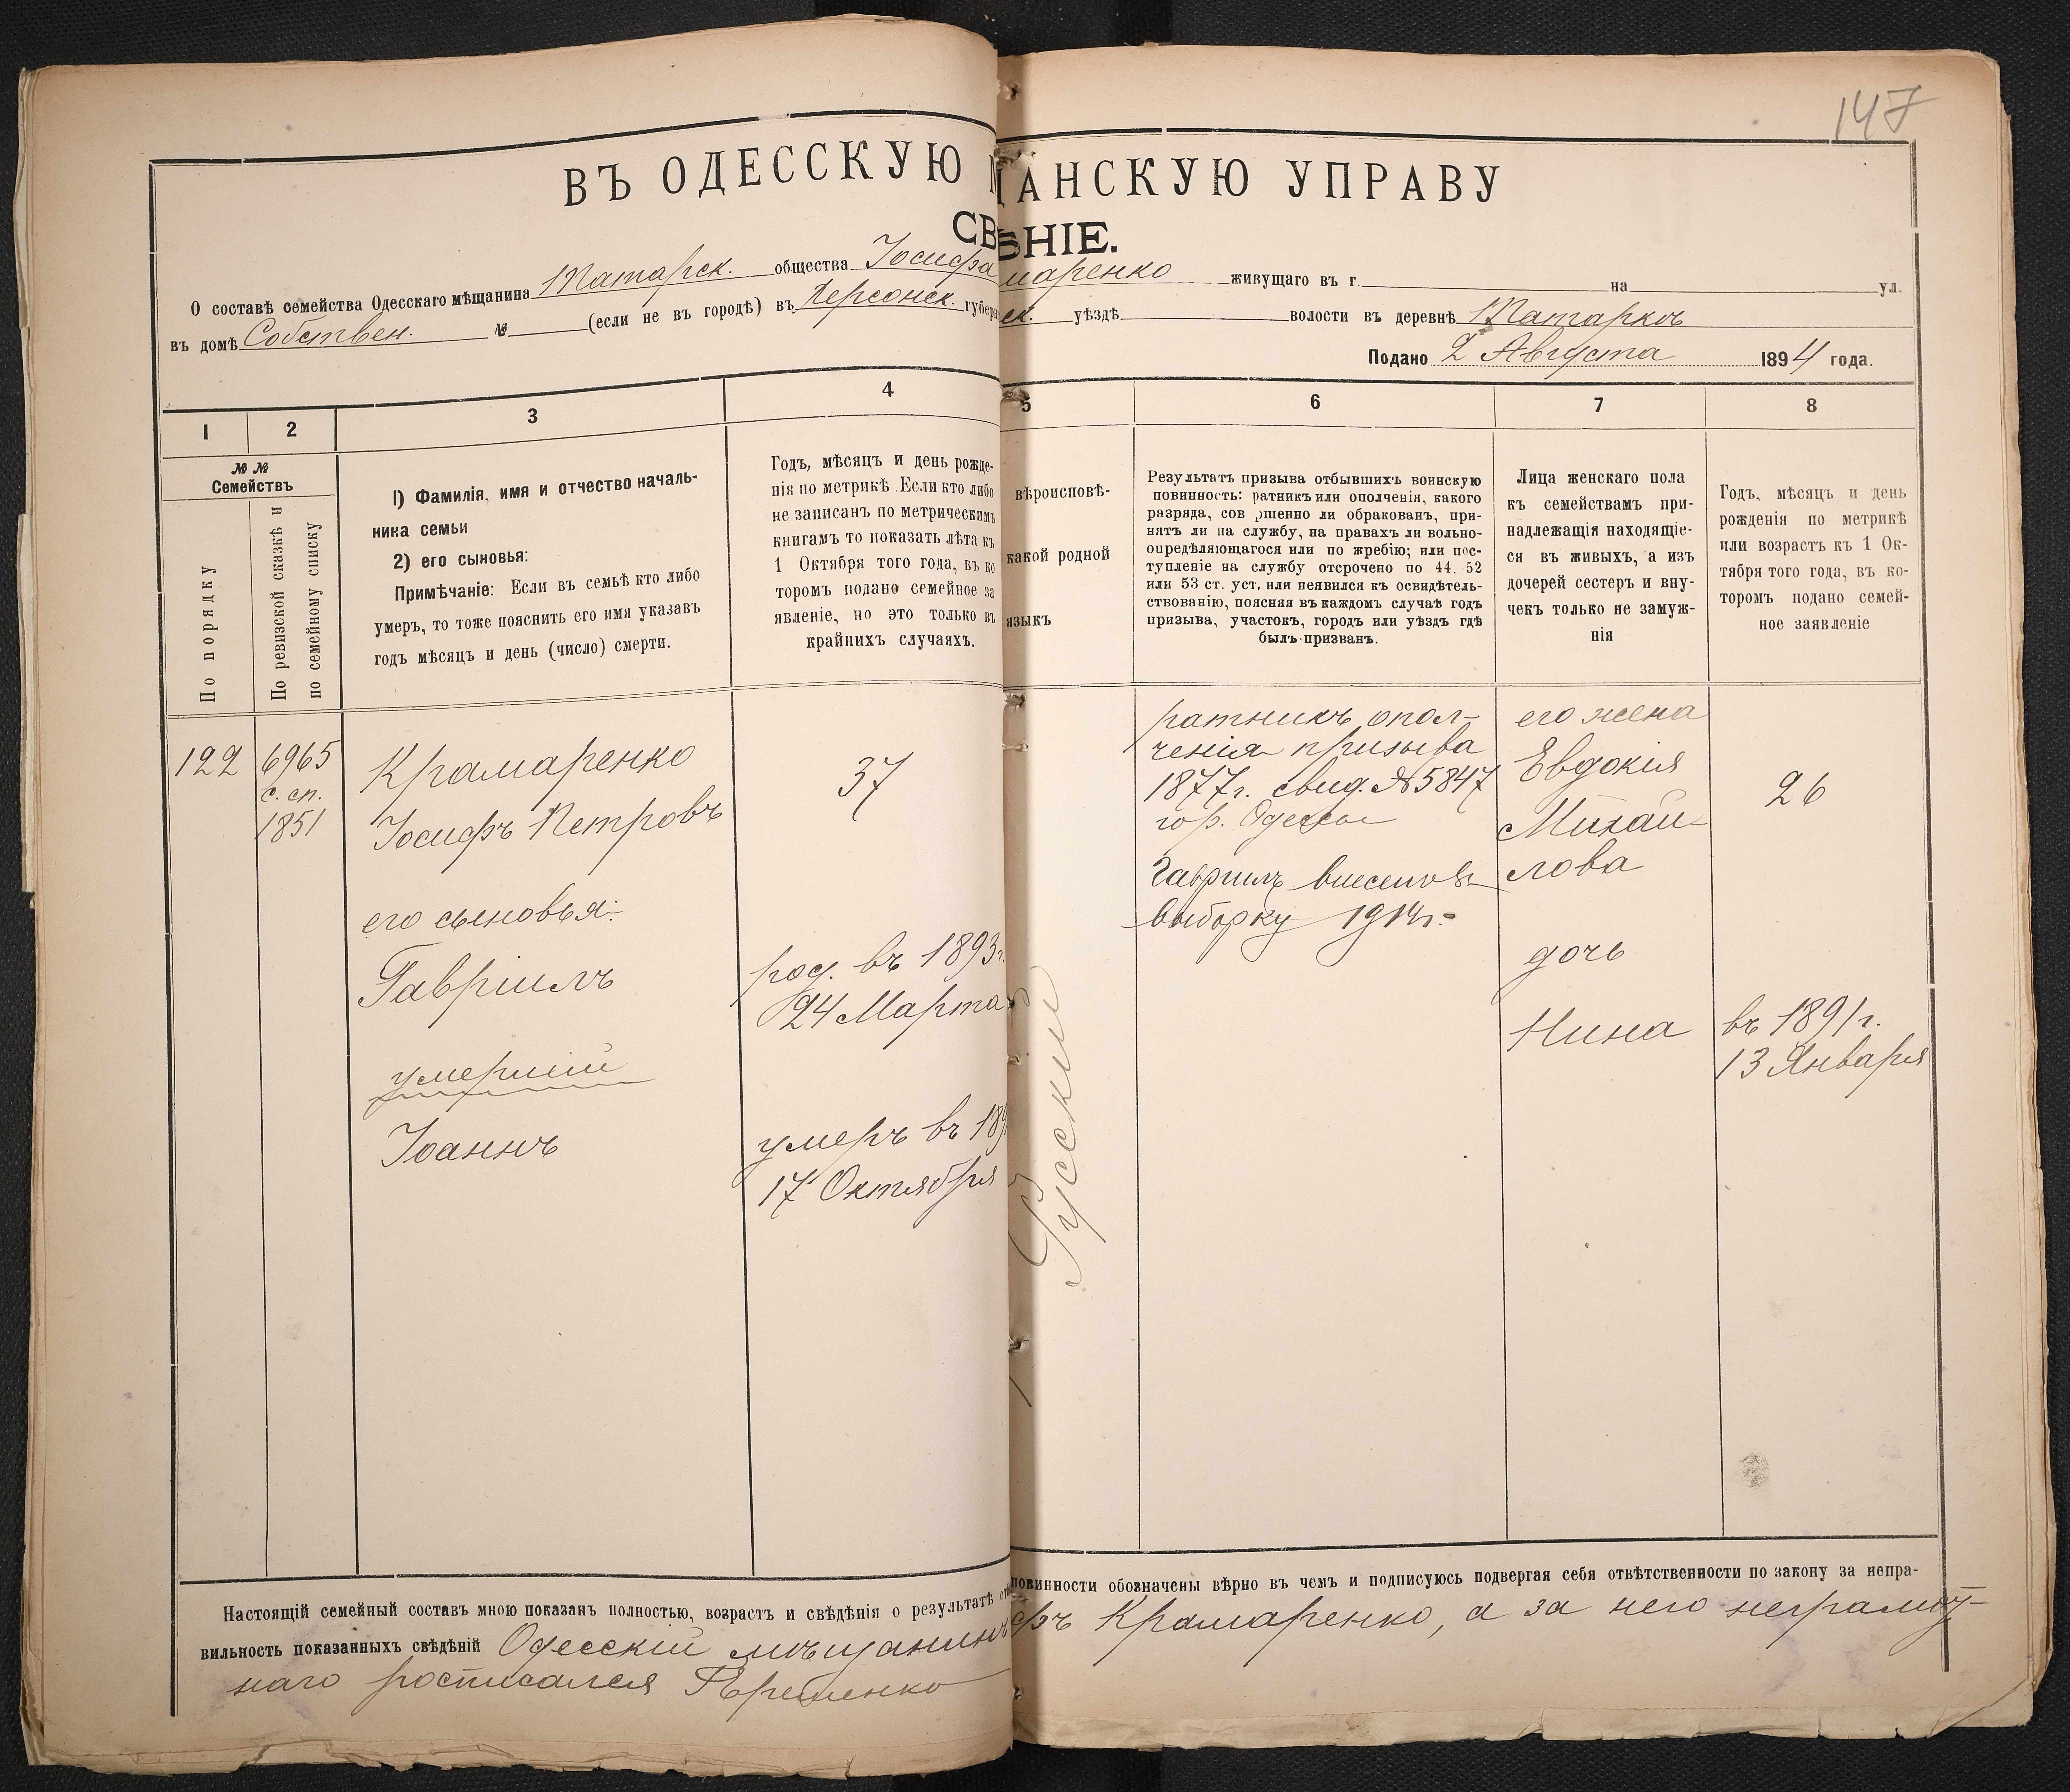 147
ВЪ ОДЕССКУЮ М ЩАНСКУЮ УПРАВУ
СВ ѢНІЕ.
О составѣ семейства Одесскаго мѣщанина Татарск. общества Іосифа маренко живущаго въ г. на ул.
въ домѣ Собствен. № (если не въ городѣ) въ Херсонск. губерн ск. уѣздѣ волости въ деревнѣ Татаркѣ
Подано 2 Августа 1894 года.
1 2 3 4 5 6 7 8
№ №
Семействъ
По порядку
По ревизской сказкѣ и
по семейному списку
1) Фамилія, имя и отчество началь-
ника семьи
2) его сыновья:
Примѣчаніе: Если въ семьѣ кто либо
умеръ, то тоже пояснить его имя указавъ
годъ мѣсяцъ и день (число) смерти.
Годъ, мѣсяцъ и день рожде-
нія по метрикѣ Если кто либо
не записанъ по метрическимъ
книгамъ то показать лѣта къ
1 Октября того года, въ ко
торомъ подано семейное за
явленіе, но это только въ
крайнихъ случаяхъ.
вѣроисповѣ-
какой родной
языкъ
Результатъ призыва отбывшихъ воинскую
повинность: ратникъ или ополченія, какого
разряда, сов ршенно ли обракованъ, при-
нятъ ли на службу, на правахъ ли вольно-
опредѣляющагося или по жребію; или пос-
тупленіе на службу отсрочено по 44, 52
или 53 ст. уст. или неявился къ освидѣтель-
ствованію, поясняя въ каждомъ случаѣ годъ
призыва, участокъ, городъ или уѣздъ гдѣ
былъ призванъ.
Лица женскаго пола
къ семействамъ при-
надлежащія находящіе-
ся въ живыхъ, а изъ
дочерей сестеръ и вну-
чекъ только не замуж-
нія
Годъ, мѣсяцъ и день
рожденія по метрикѣ
или возрастъ къ 1 Ок-
тября того года, въ ко-
торомъ подано семей-
ное заявленіе
122
6965
с. сп.
1851
Крамаренко
Іосифъ Петровъ
его сыновья:
Гавріилъ
умершій
Іоаннъ
37
род. въ 1893г.
24 Марта
умеръ въ 189
17 Октября
Русскій
ратникъ опол-
ченія призыва
1877г. свид. №5847
гор. Одессы
Гавріилъ внесенъ въ
выборку 1914г.
его жена
Евдокія
Михай-
лова
дочь
Нина
26
въ 1891г.
13 Января
Настоящій семейный составъ мною показанъ полностью, возрастъ и свѣдѣнія о результатѣ от повинности обозначены вѣрно въ чемъ и подписуюсь подвергая себя отвѣтственности по закону за непра-
вильность показанныхъ свѣдѣній Одесскій мѣщанинъ фъ Крамаренко, а за него неграмот-
наго росписался